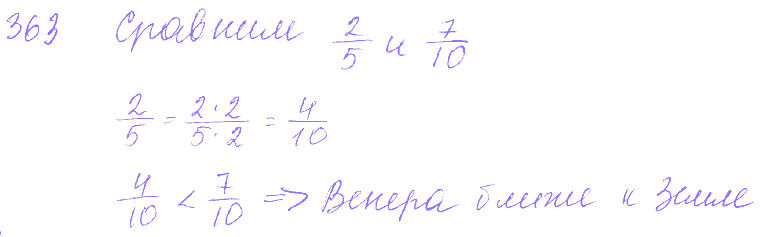 363 Сравним 2/5 и 7/10
2/5 = 2·2/5·2 = 4/10
4/10 < 7/10 => Венера ближе к Земле